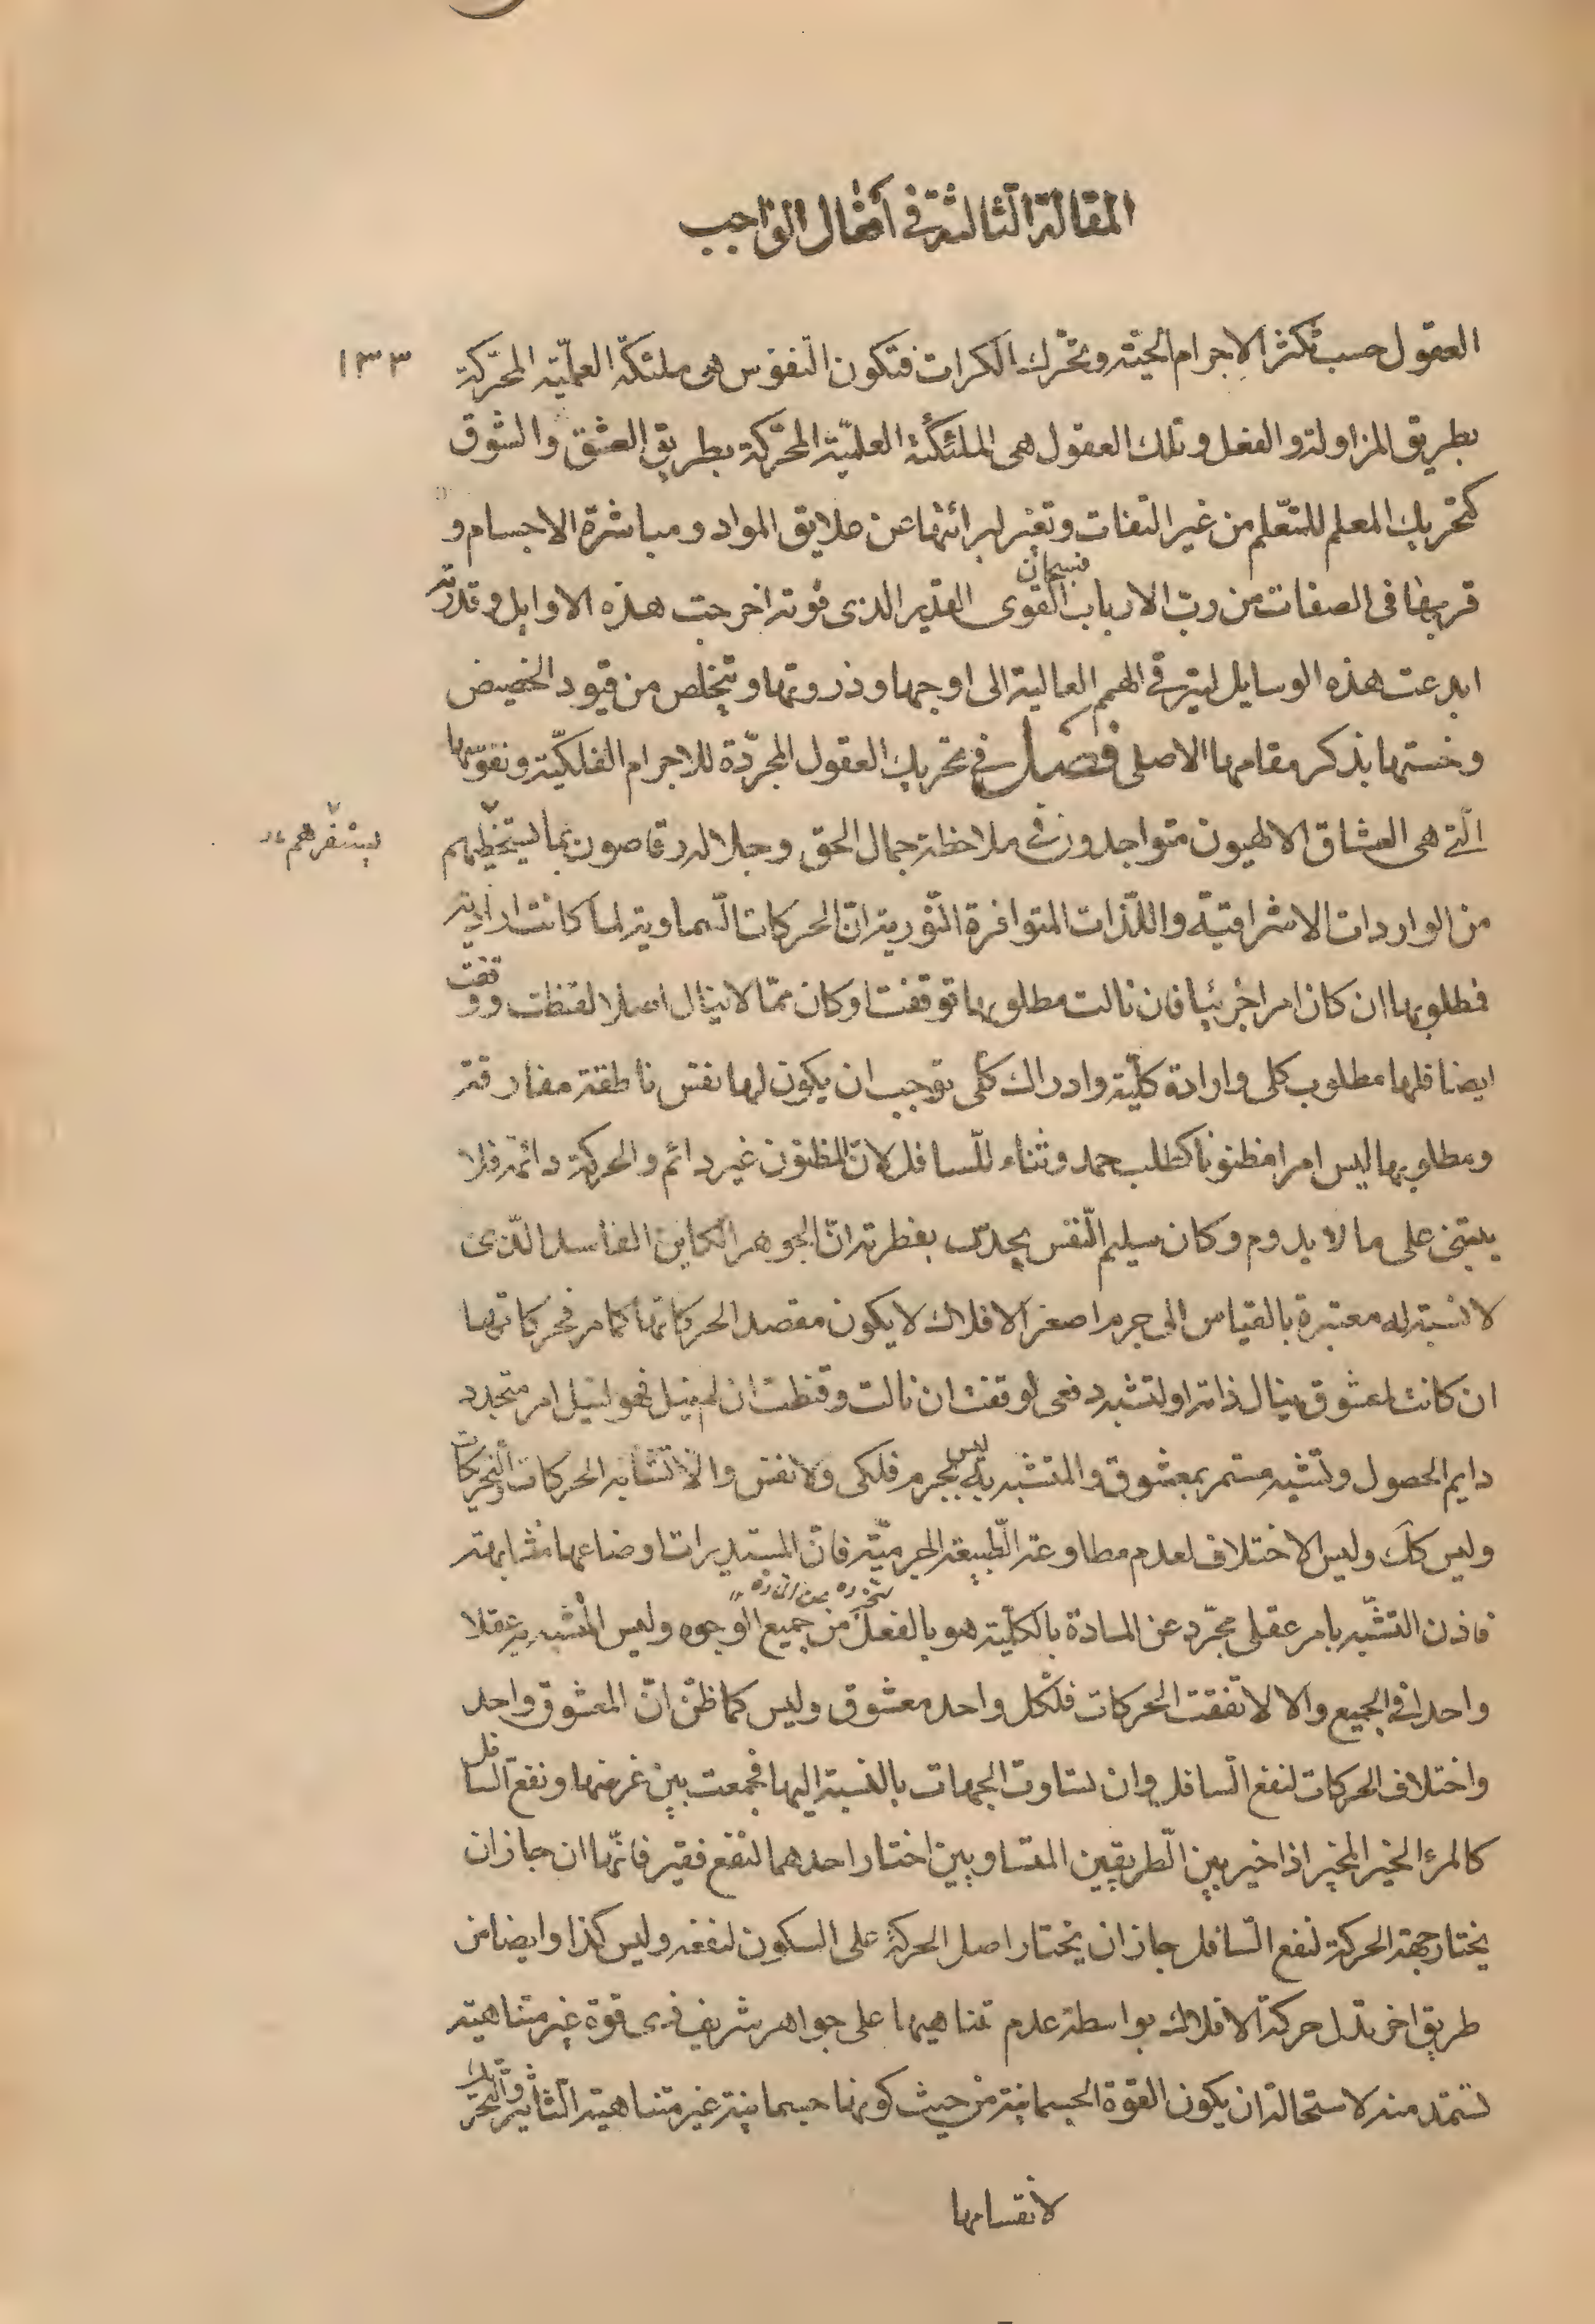 المقالة الثالثة في افعال الواجب
١٣٣
العقول حسب تكثر الاجرام الحية وتحرك الكرات فتكون النفوس هى ملئكة العملية المحركة
بطريق المزاولة والفعل وتلك العقول هى الملئكة العلمية المحركة بطريق العشق والشوق
كتحريك المعلم للمتعلم من غير التفات وتغير لبرائتها عن علايق المواد ومباشرة الاجسام و
قربها فى الصفات من رب الارباب فسبحان القوى القدير الذى قوته اخرجت هذه الاوايل وقدرته
ابدعت هذه الوسايل ليترقى الهمم العالية الى اوجها وذروتها وتتخلص من قيود الحضيض
وخستها بذكر مقامها الاصلى فصل فى تحريك العقول المجردة للاجرام الفلكية ونفوسها
الّتى هى العشاق الالهيون متواجدون فى ملاحظة جمال الحق وجلاله رقاصون بما يستخفهم
يستفزهم خ
من الواردات الاشراقية واللّذات المتوافرة النّورية انّ الحركات السّماوية لما كانت ارادية
فمطلوبها ان كان امرا جزئيا فان نالت مطلوبها توقفت او كان ممّا لا ينال اصلا لقنطت ووقفت
ايضا فلها مطلوب كلى وارادة كلّية وادراك كلّى يوجب ان يكون لها نفس ناطقة مفارقة
ومطلوبها ليس امرا مظنونا كطلب حمد وثناء للّسافل لانّ المظنون غير دائم والحركة دائمة فلا
يبتنى على ما لا يدوم وكان سليم النّفس يحدس بفطرته انّ الجوهر الكاين الفاسد الّذى
لا نسبة له معتبرة بالقياس الى جرم اصغر الافلاك لا يكون مقصد الحركاتها كما مر فحركاتها
ان كانت لمعشوق ينال ذاته او لتشبه دفعى لوقفت ان نالت وقنطت ان لم ينل فهو لنيل امر متجدد
دايم الحصول ولتشبه مستمر بمعشوق والمتشبه به ليس بجرم فلكى ولا نفس والا لتشابه الحركات والتحريكات
وليس كك وليس الاختلاف لعدم مطاوعة الطّبيعة الجرميّة فانّ المستديرات اوضاعها متشابهة
فاذن التشبّه بامر عقلى مجّرد عن المادة بالكلّية هو بالفعل من جميع الوجوه وليس المشبه به عقلا
واحدا فى الجميع والا لاتفقت الحركات فلكل واحد معشوق وليس كما ظنّ انّ المعشوق واحد
واختلاف الحركات لنفع السّافل وان تساوت الجهات بالنسبة اليها فجمعت بين غرضها ونفع السافل
كالمرء الخير المخير اذا خير بين الّطريقين المتساويين اختار احدهما لنفع فقير فانّها ان جاز ان
يختار جهة الحركة لنفع السّافل جاز ان يختار اصل الحركة على السكون لنفعه وليس كذا وايضا من
طريق اخر تدل حركة الافلاك بواسطة عدم تناهيها على جواهر شريف ذى قوة غير متناهية
تستمد منه لاستحالة ان يكون القوة الجسمانية من حيث كونها جسمانية غير متناهية التّاثير والتحريك
لانقسامها